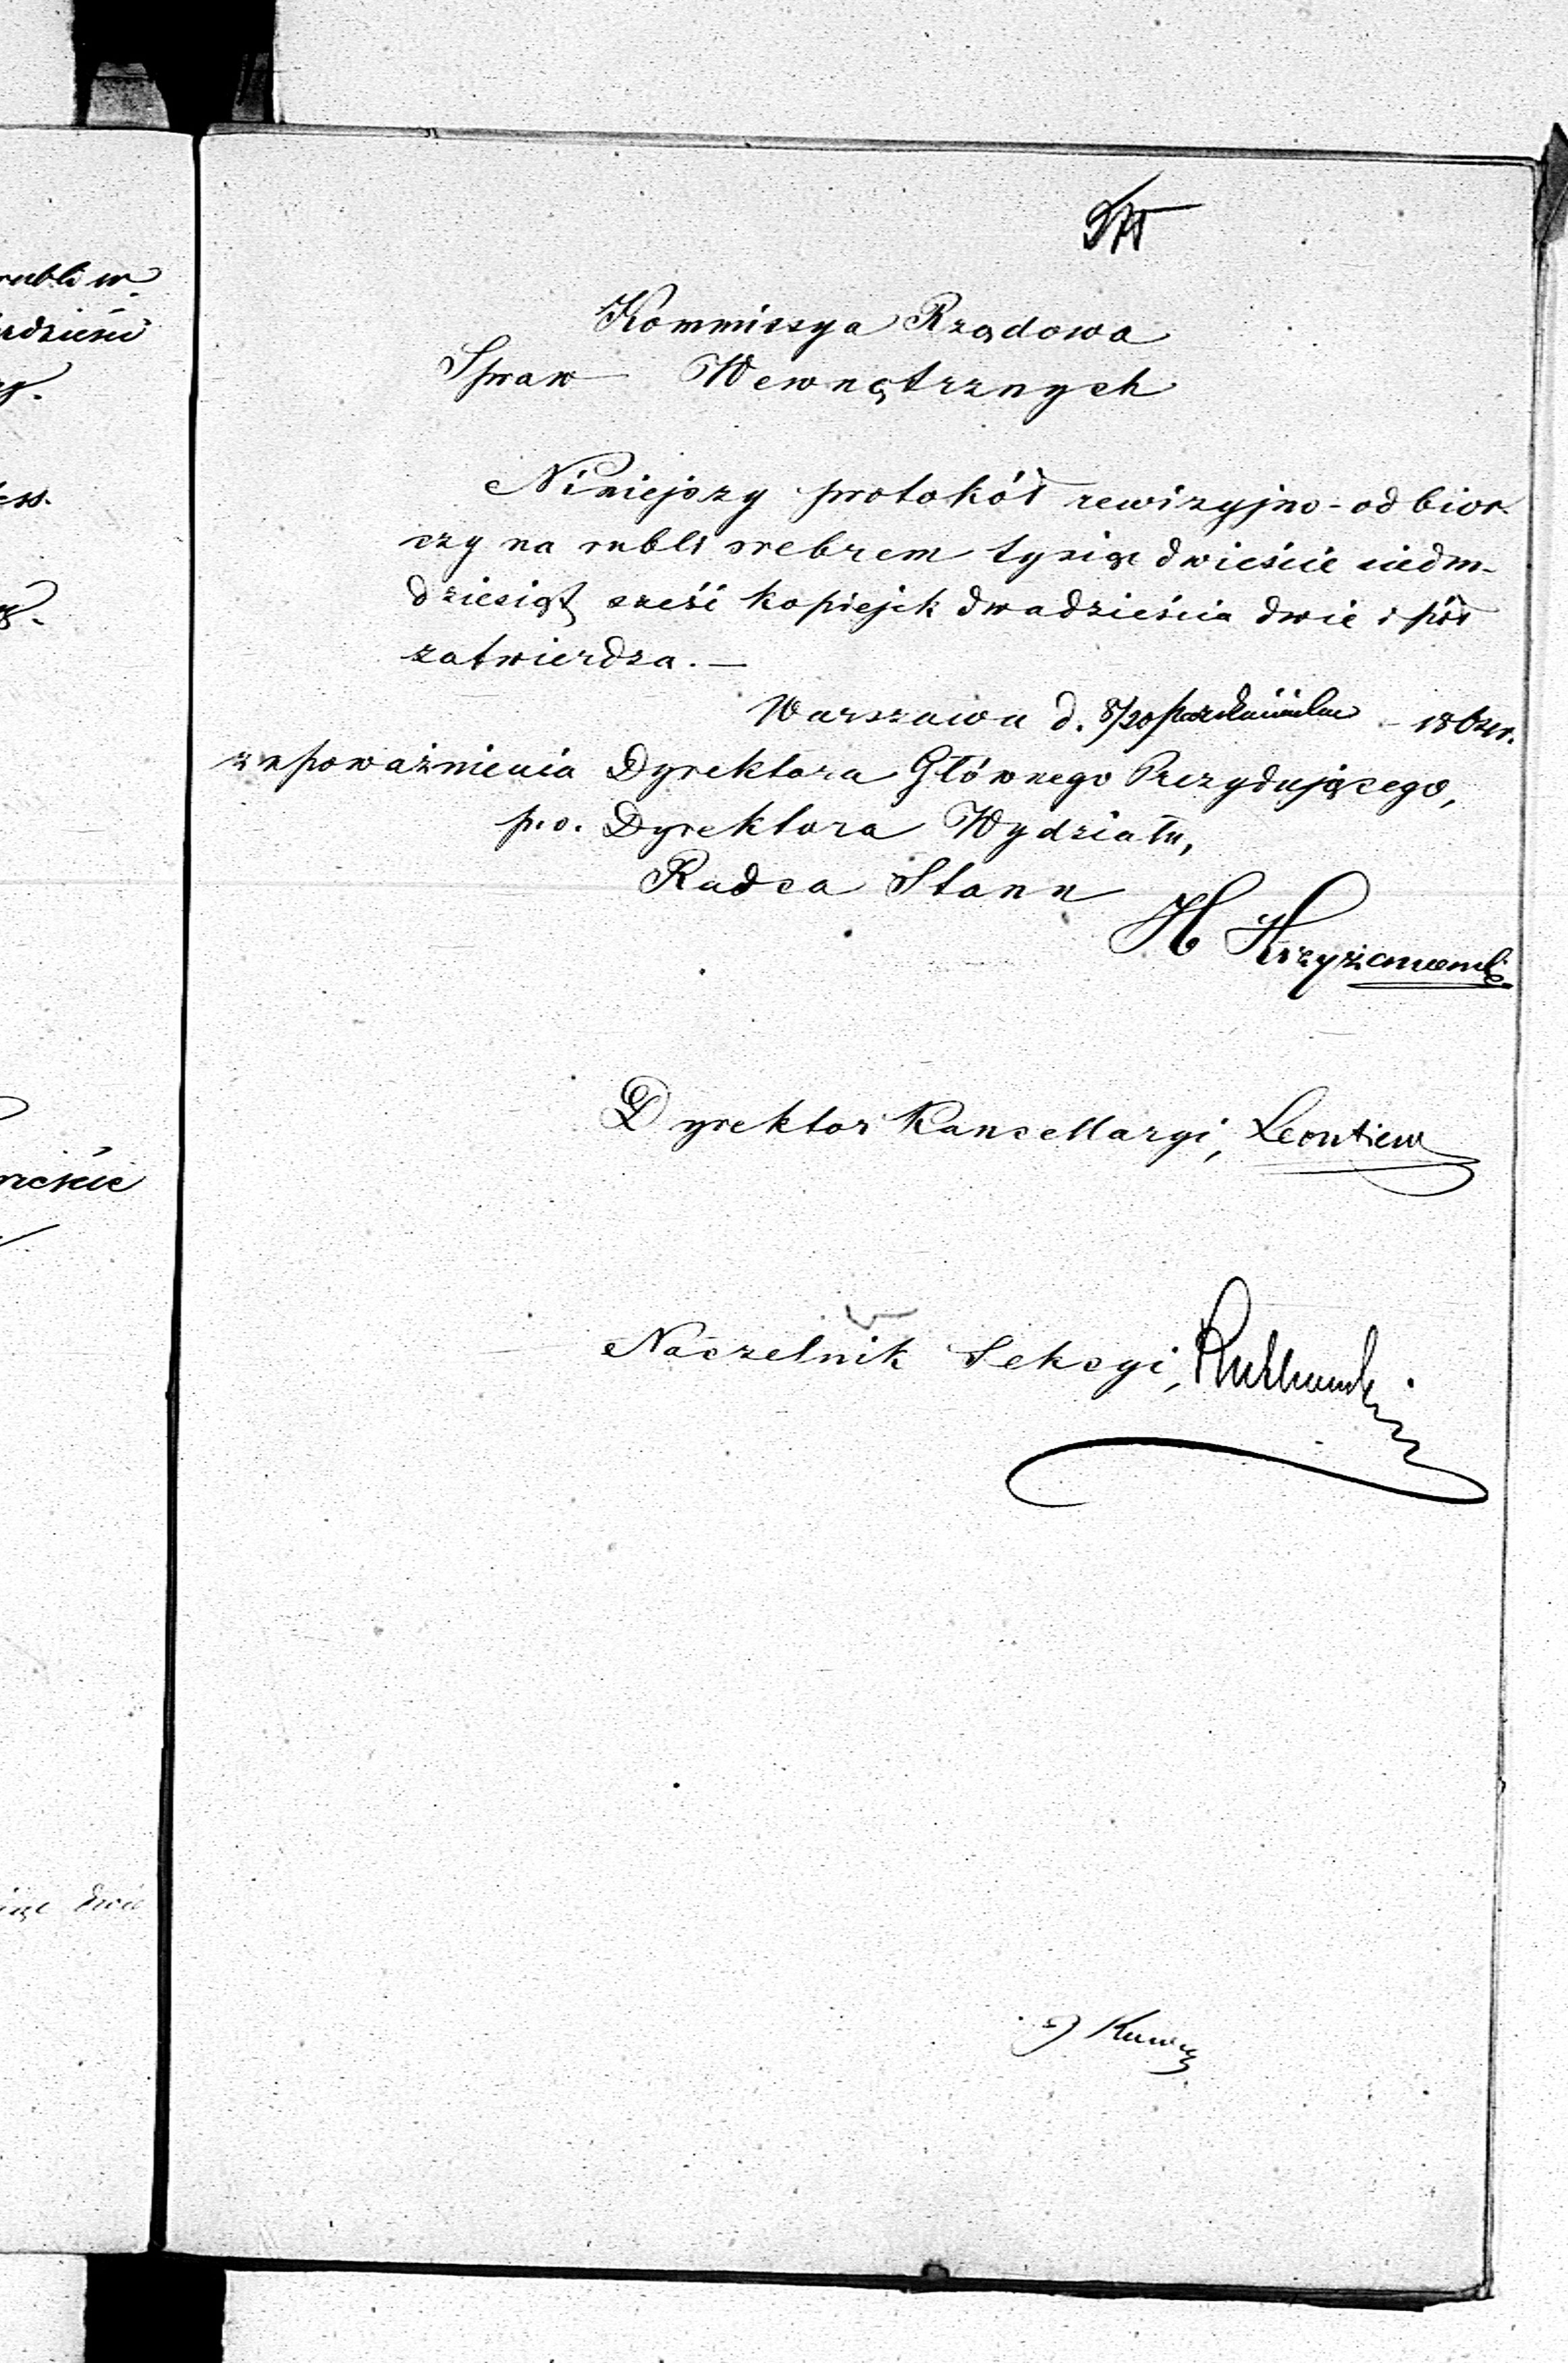 Kommissya Rządowa
Spraw Wewnętrznych
Niniejszy protokół rewizyjno-odbior-
czy na rubli srebrem tysiąc dwieście siedm-
dziesiąt sześć kopiejek dwadzieścia dwie i pół
zatwierdza. —
Warszawa d. 8/20 października 186
z upoważnienia Dyrektora Głównego Prezydującego,
p.o. Dyrektora Wydziału,
Radca Stanu
H Krzyżanowski
Dyrektor Kancellaryi, Leontiew
Naczelnik Sekcyi,